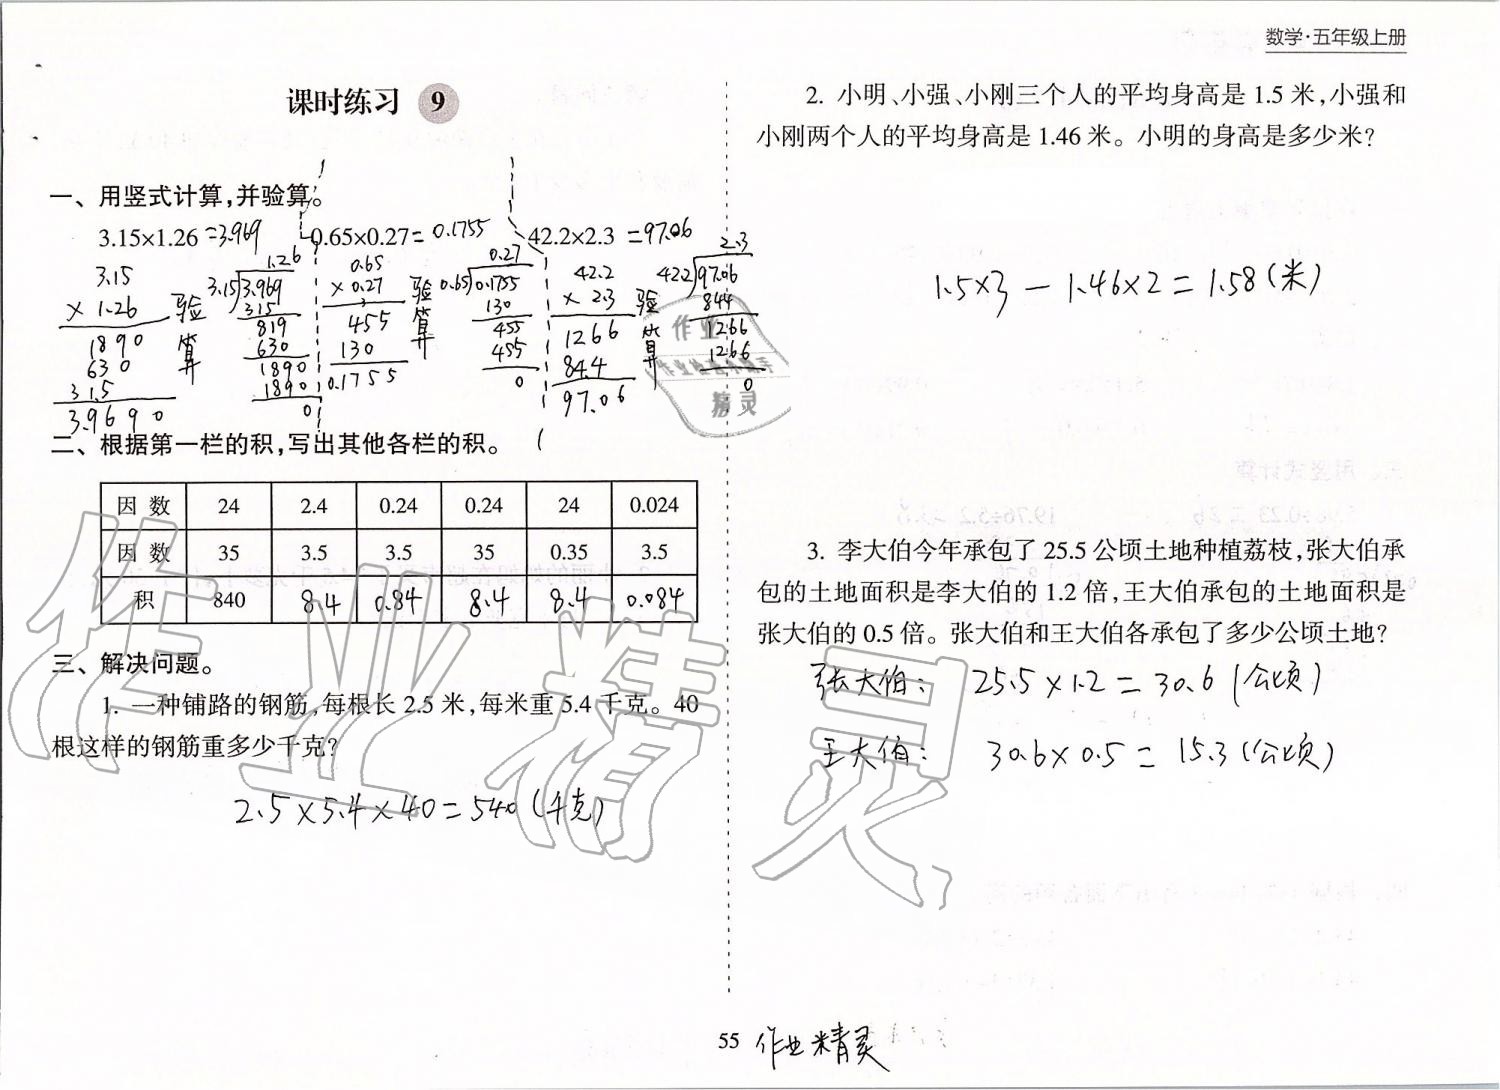 数学·五年级上册
课时练习 9
一、用竖式计算,并验算。
3.15×1.26 =3.969
0.65×0.27= 0.1755
42.2×2.3 =97.06
3.15
× 1.26
1890
630
315
3.9690
验算
1.26
3.15 3.969
315
819
630
1890
1890
0
0.65
× 0.27
455
130
0.1755
验算
0.27
0.65 0.1755
130
455
455
0
42.2
× 2.3
1266
844
97.06
验算
2.3
42.2 97.06
844
1266
1266
0
二、根据第一栏的积,写出其他各栏的积。
因 数 24 2.4 0.24 0.24 24 0.024
因 数 35 3.5 3.5 35 0.35 3.5
积 840 8.4 0.84 8.4 8.4 0.084
三、解决问题。
1. 一种铺路的钢筋,每根长 2.5 米,每米重 5.4 千克。40
根这样的钢筋重多少千克?
2.5×5.4×40=540(千克)
2. 小明、小强、小刚三个人的平均身高是 1.5 米,小强和
小刚两个人的平均身高是 1.46 米。小明的身高是多少米?
1.5×3-1.46×2=1.58(米)
3. 李大伯今年承包了 25.5 公顷土地种植荔枝,张大伯承
包的土地面积是李大伯的 1.2 倍,王大伯承包的土地面积是
张大伯的 0.5 倍。张大伯和王大伯各承包了多少公顷土地?
张大伯: 25.5×1.2=30.6(公顷)
王大伯: 30.6×0.5=15.3(公顷)
作业
精灵
作业精灵
55 作业精灵